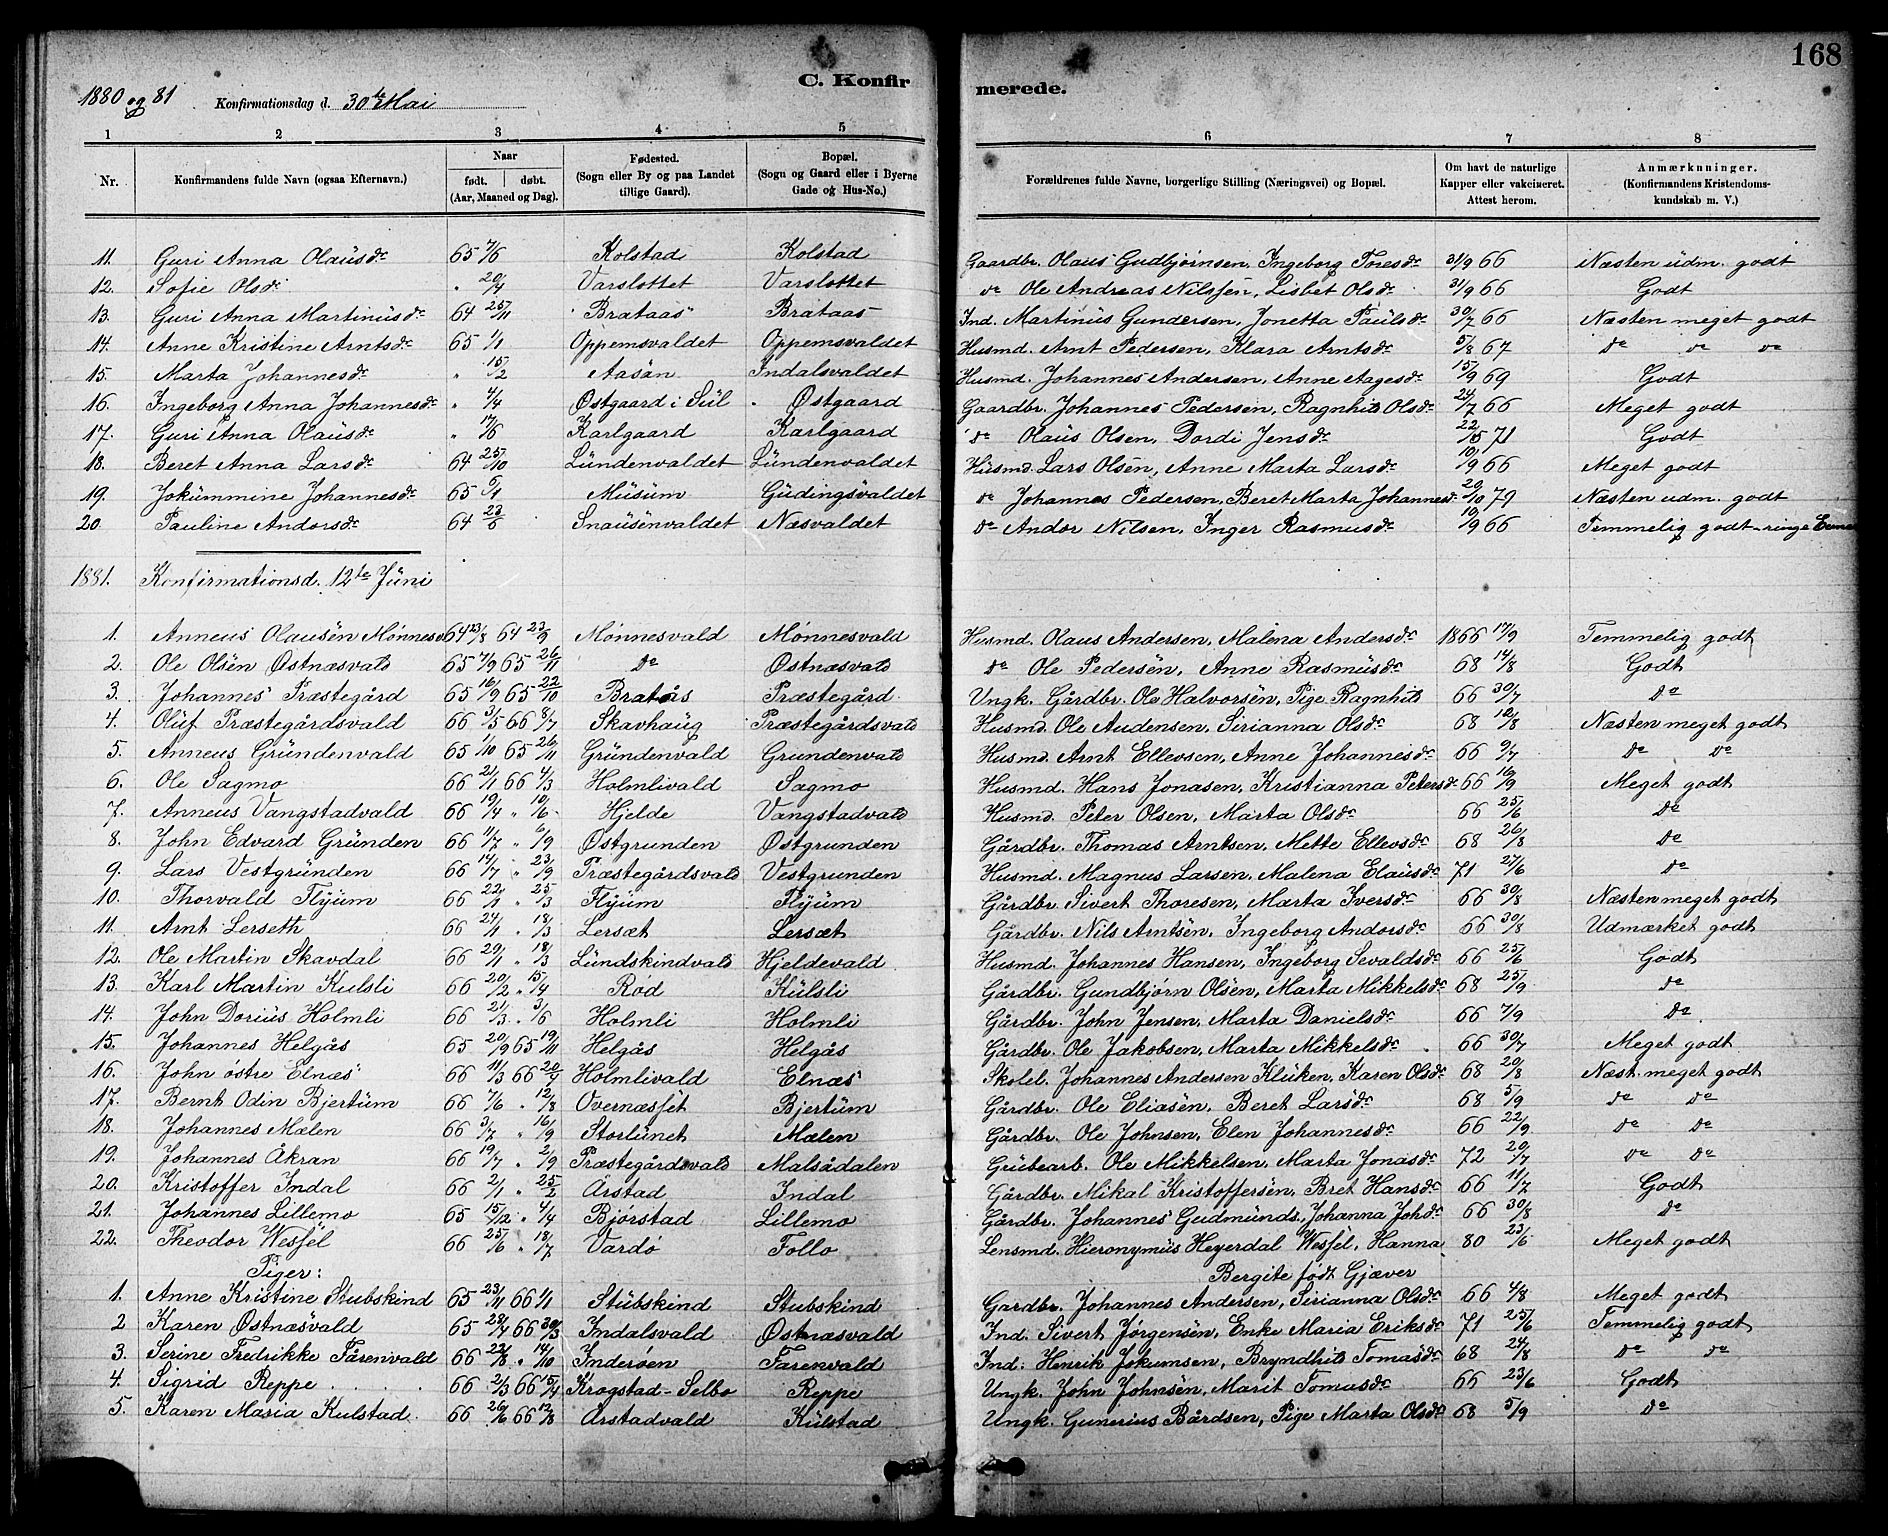 168
1880 og 81 Konfirmationsdag d. 30te Mai C. Konfirmerede.
1 2 3 4 5 6 7 8
Nr. Konfirmandens fulde Navn (ogsaa Efternavn). Naar født. døbt. (Aar, Maaned og Dag). Fødested. (Sogn eller By og paa Landet tillige Gaard). Bopæl. (Sogn og Gaard eller i Byerne Gade og Hus-No.) Forældrenes fulde Navne, borgerlige Stilling (Næringsvei) og Bopæl. Om havt de naturlige Kapper eller vakcineret. Attest herom. Anmærkninger. (Konfirmandens Kristendoms-kundskab m. V.)
11. Guri Anna Olausdr 65 7/6 Kolstad Kolstad Gaardbr. Olaus Gudbjörnsen, Ingeborg Toresdr 31/9 66 Næsten udm. godt
12. Sofie Olsdr " 20/7 Varslottet Varslottet do Ole Andreas Nilssen, Lisbet Olsdr 21/9 66 Godt
13. Guri Anna Martinusdr 64 25/11 Brataas Brataas Ind. Martinus Gundersen, Jonetta Paulsdr 30/7 66 Næsten meget godt
14. Anne Kristine Arntsdr 65 1/1 Oppemsvaldet Oppemsvaldet Husmd. Arnt Pedersen, Klara Arntsdr 5/8 67 do do do
15. Marta Johannesdr " 15/2 Aasan Indalsvaldet Husmd. Johannes Andersen, Anne Aagesdr 15/9 69 Godt
16. Ingeborg Anna Johannesdr " 4/4 Østgaard i Sul Østgaard Gaardbr. Johannes Pedersen, Ragnhild Olsdr 29/7 66 Meget godt
17. Guri Anna Olausdr " 17/6 Karlgaard Karlgaard do Olaus Olsen, Dordi Jensdr 22/5 71 Godt
18. Beret Anna Larsdr 64 25/10 Lundenvaldet Lundenvaldet Husmd. Lars Olsen, Anne Marta Larsdr 10/9 66 Meget godt
19. Jokummine Johannesdr 65 5/1 Musum Gudingsvaldet do Johannes Pedersen, Beret Marta Johannesdr 20/10 79 Næsten udm. godt
20. Pauline Andorsdr 64 23/5 Snausenvaldet Næsvaldet do Andor Nilsen, Inger Rasmusdr 10/9 66 Temmelig godt - ringe Evner
1881. Konfirmationsd. 12te Juni
1. Anneus Olausen Mönnesv. 64 23/8 64 23/9 Mönnesvald Mönnesvald Husmd. Olaus Andersen, Malena Andersdr 1866 17/9 Temmelig godt
2. Ole Olsen Østnæsvald 65 7/9 65 26/11 do Østnæsvald do Ole Pedersen, Anne Rasmusdr 68 14/8 Godt
3. Johannes Præstegård 65 16/9 65 22/10 Bratås Præstegård. Ungk. Gårdbr. Ole Halvorsen, Pige Ragnhild 66 30/7 do
4. Oluf Præstegårdsvald 66 3/5 66 8/7 Skavhaug Præstegårdsvald Husmd. Ole Audensen, Sirianna Olsdr 68 12/8 Næsten meget godt
5. Anneus Grundenvald 65 1/10 65 26/11 Grundenvald Grundenvald Husmd. Arnt Ellevsen, Anne Johannesdr 66 9/7 do do
6. Ole Sagmo 66 21/1 66 4/3 Holmlivald Sagmo Husmd. Hans Jonasen, Kristianna Petersdr 66 16/9 Meget godt
7. Anneus Vangstadvald 66 19/4 " 10/6 Hjelde Vangstadvald Husmd. Peter Olsen, Marta Olsdr 66 25/6 do
8. John Edvard Grunden 66 11/7 " 6/9 Østgrunden Østgrunden Gårdbr. Thomas Arntsen, Mette Ellevsdr 68 26/8 do
9. Lars Vestgrunden 66 14/7 " 23/9 Præstegårdsvald Vestgrunden Husmd. Magnus Larsen, Malena Elausdr 71 27/6 do
10. Thorvald Flyum 66 22/1 " 25/3 Flyum Flyum Gårdbr. Sivert Thoresen, Marta Iversdr 66 30/8 Næsten meget godt
11. Arnt Lerseth 66 24/1 " 18/3 Lersæt Lersæt Gårdbr. Nils Arntsen, Ingeborg Andorsdr 66 30/8 Udmærket godt
12. Ole Martin Skavdal 66 29/1 " 18/3 Lundskindvald Hjeldevald Husmd. Johannes Hansen, Ingeborg Sevaldsdr 66 25/6 Godt
13. Karl Martin Kulsli 66 20/2 " 15/4 Rod Kulsli Gårdbr. Gundbjørn Olsen, Marta Mikkelsdr 68 25/9 do
14 John Dorius Holmli 66 21/3 " 3/6 Holmli Holmli Gårdbr. John Jensen, Marta Danielsdr 66 7/9 do
15. Johannes Helgås 65 20/9 65 19/11 Helgås Helgås Gårdbr. Ole Jakobsen, Marta Mikkelsdr 66 30/7 Meget godt
16. John østre Elnæs 66 11/3 66 20/7 Holmlivald Elnæs Skolel. Johannes Andersen Kluken, Karen Olsdr 68 20/8 Næst. meget godt
17. Bernt Odin Bjertum 66 7/6 " 12/8 Overnæsset Bjertum Gårdbr. Ole Eliasen, Beret Larsdr 68 5/9 do do
18. Johannes Mælen 66 3/7 " 16/9 Storlunet Mælen Gårdbr. Ole Johnsen, Elen Johannesdr 66 22/9 do do
19. Johannes Åkran 66 19/7 " 2/9 Præstegårdsvald Malsådalen Grubearb. Ole Mikkelsen, Marta Jonasdr 72 20/7 do do
20. Kristoffer Indal 66 2/1 " 25/2 Årstad Indal Gårdbr. Mikal Kristoffersen, Bret Hansdr 66 11/7 Godt
21. Johannes Lillemo 65 15/12 " 4/4 Bjørstad Lillemo Gårdbr. Johannes Gudmunds. Johanna Johdr 66 30/8 do
22. Theodor Wessel 66 25/6 " 18/7 Vardø Follo Lensmd. Hieronymus Heyerdal Wessel, Hanna 80 23/6 Meget godt
Piger: Bergite født Gjæver
1. Anne Kristine Stubskind 65 23/11 66 1/1 Stubskind Stubskind Gardbr. Johannes Andersen, Sirianna Olsdr 66 4/8 Meget godt
2 Karen Østnæsvald 65 28/7 66 30/3 Indalsvald Østnæsvald Ind. Sivert Jørgensen, Enke Maria Eriksdr 71 25/6 Temmelig godt
3. Serine Fredrikke Färenvald 66 22/8 " 14/10 Inderøen Farenvald Ind. Henrik Jokumsen, Bryndhild Tomasdr 68 24/8 do do
4. Sigrid Reppe 66 2/3 66 15/4 Krogstad-Selbo Reppe Ungk. John Johnsen, Marit Tomasdr 66 23/6 Godt
5. Karen Masia Kulstad 66 26/6 66 12/8 Årstadvald Kulstad Ungk. Gunerius Bårdsen, Pige Marta Olsdr 68 5/9 do